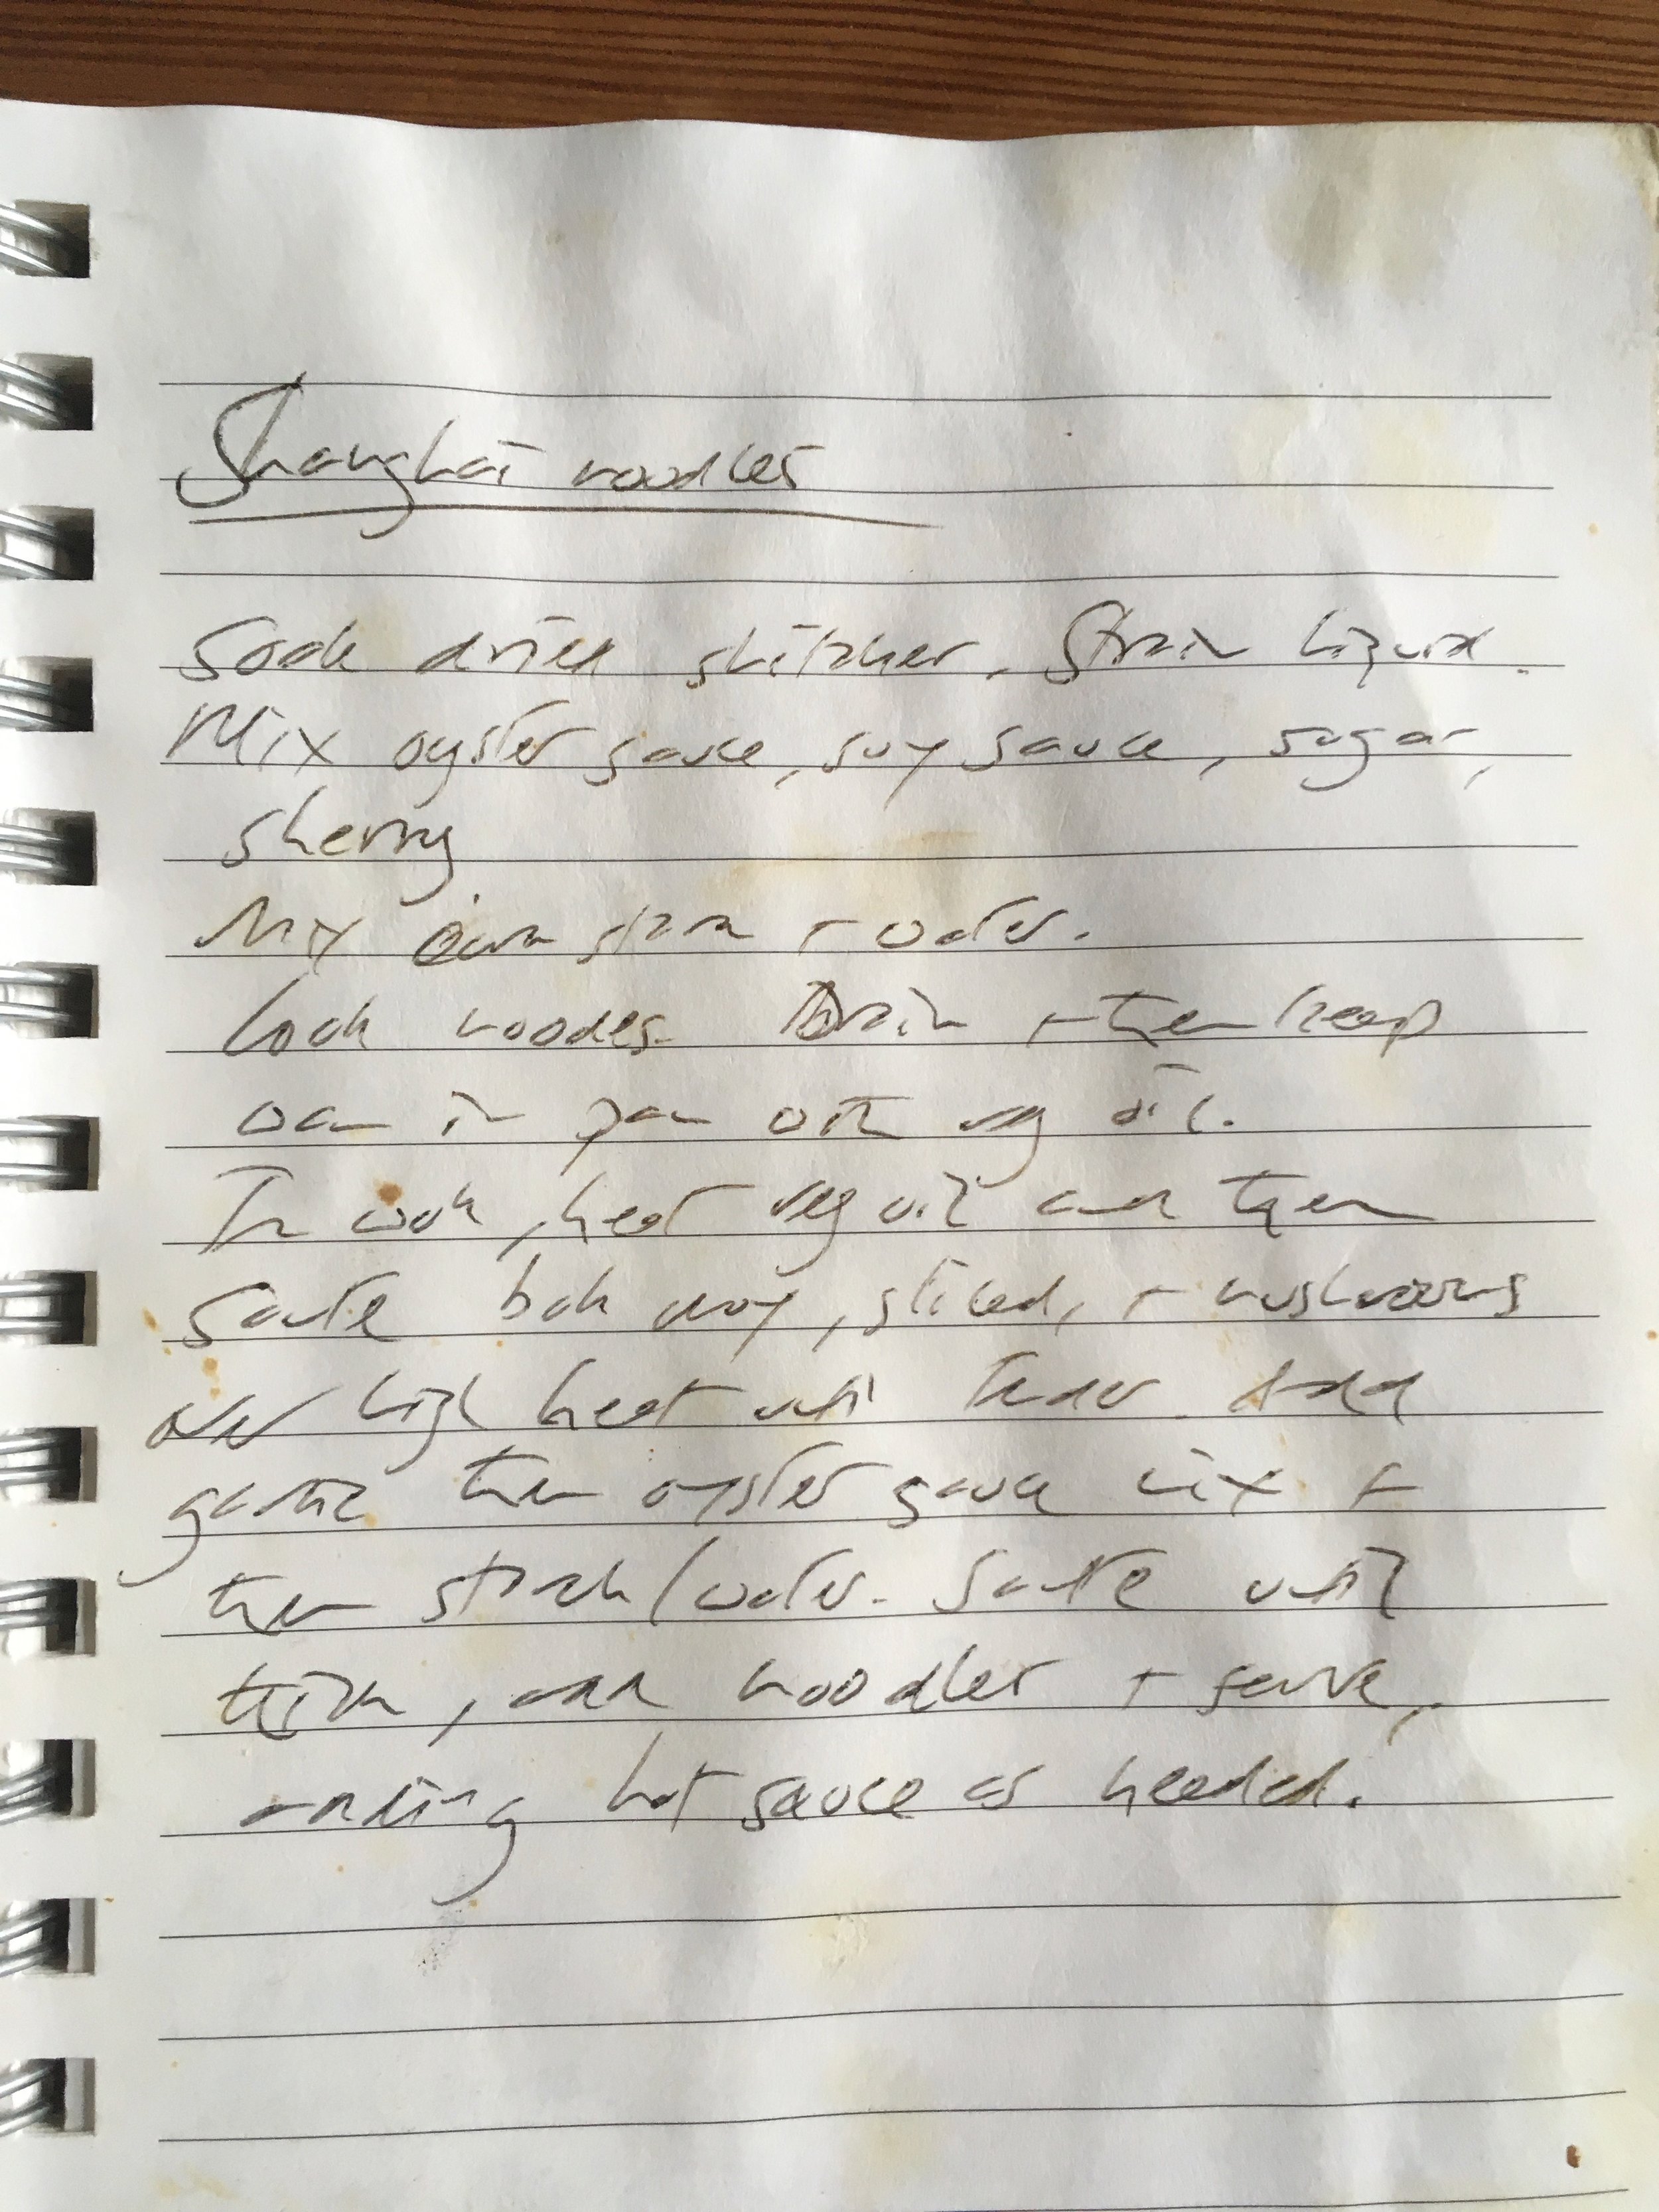 Shanghai noodles
Soak dried shitakes. Strain liquid.
Mix oyster sauce, soy sauce, sugar,
sherry
Mix corn starch + water.
Cook noodles. Drain + then keep
warm in pan with veg oil.
In wok, heat veg oil and then
saute bok choy, sliced, + mushrooms
over high heat until tender. Add
garlic then oyster sauce mix +
then starch/water. Saute until
thick, add noodles + serve,
adding hot sauce as needed.